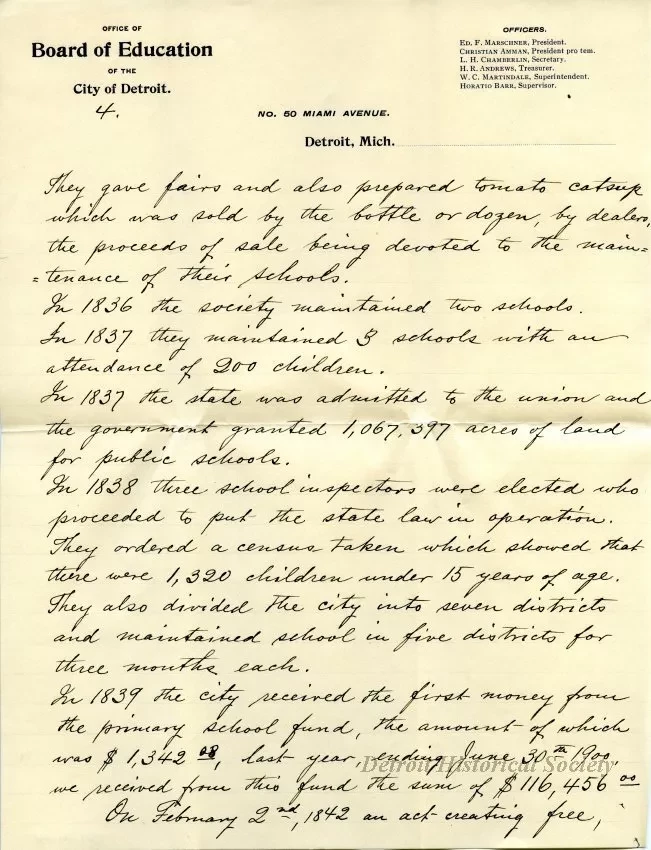 OFFICE OF
Board of Education
OF THE
City of Detroit.
4.
OFFICERS.
ED. F. MARSCHNER, President.
CHRISTIAN AMMAN, President pro tem.
L. H. CHAMBERLIN, Secretary.
H. R. ANDREWS, Treasurer.
W. C. MARTINDALE, Superintendent.
HORATIO BARR, Supervisor.
NO. 50 MIAMI AVENUE.
Detroit, Mich.
They gave fairs and also prepared tomato catsup
which was sold by the bottle or dozen, by dealers,
the proceeds of sale being devoted to the main=
=tenance of their schools.
In 1836 the society maintained two schools.
In 1837 they maintained 3 schools with an
attendance of 200 children.
In 1837 the state was admitted to the union and
the government granted 1,067,397 acres of land
for public schools.
In 1838 three school inspectors were elected who
proceeded to put the state law in operation.
They ordered a census taken which showed that
there were 1,320 children under 15 years of age.
They also divided the city into seven districts
and maintained school in five districts for
three months each.
In 1839 the city received the first money from
the primary school fund, the amount of which
was $1,342 08, last year, ending June 30th 1900,
we received from this fund the sum of $116,456 00
On February 2nd, 1842 an act creating free,
Detroit Historical Society